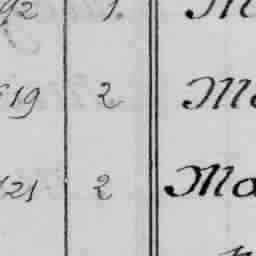 92 1. M
619 2 Ma
121 2 Ma